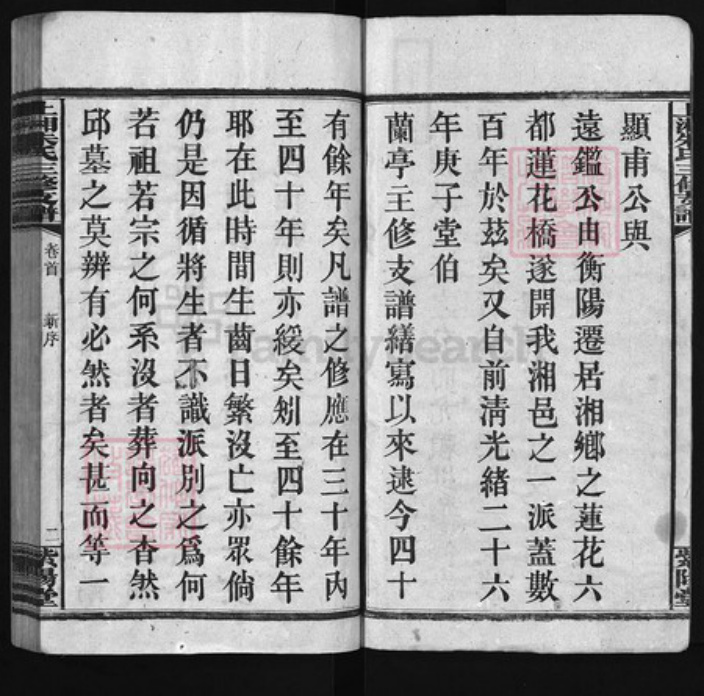 顯甫公與
遠鑑公由衡陽遷居湘鄉之蓮花六
都蓮花橋遂開我湘邑之一派蓋數
百年於茲矣又自前淸光緒二十六
年庚子堂伯
蘭亭主修支譜繕寫以來逮今四十
有餘年矣凡譜之修應在三十年內
至四十年則亦緩矣矧至四十餘年
耶在此時間生齒日繁沒亡亦眾倘
仍是因循將生者不識派別之爲何
若祖若宗之何系沒者葬向之杳然
邱墓之莫辨有必然者矣甚而等一
上湘朱氏三修支譜
卷首
新序
二
紫陽堂
FamilySearch